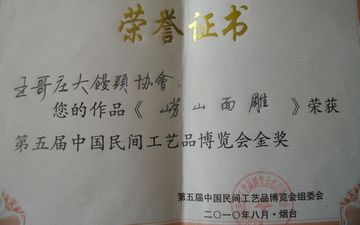 荣誉证书
王哥庄大饅頭协會
您的作品《崂山面雕》荣获
第五届中国民间工艺品博览会金奖
第五届中国民间工艺品博览会组委会
二〇一〇年八月·烟台